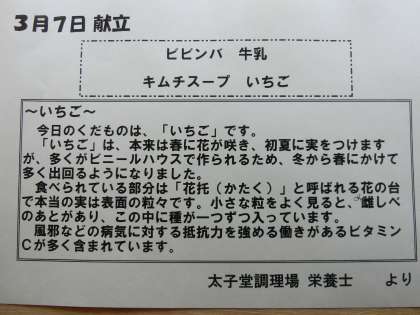 3月7日 献立
ビビンバ 牛乳
キムチスープ いちご
～いちご～
今日のくだものは、「いちご」です。
「いちご」は、本来は春に花が咲き、初夏に実をつけます
が、多くがビニールハウスで作られるため、冬から春にかけて
多く出回るようになりました。
食べられている部分は「花托（かたく）」と呼ばれる花の台
で本当の実は表面の粒々です。小さな粒をよく見ると、雌しべ
のあとがあり、この中に種が一つずつ入っています。
風邪などの病気に対する抵抗力を強める働きがあるビタミン
Cが多く含まれています。
太子堂調理場 栄養士 より